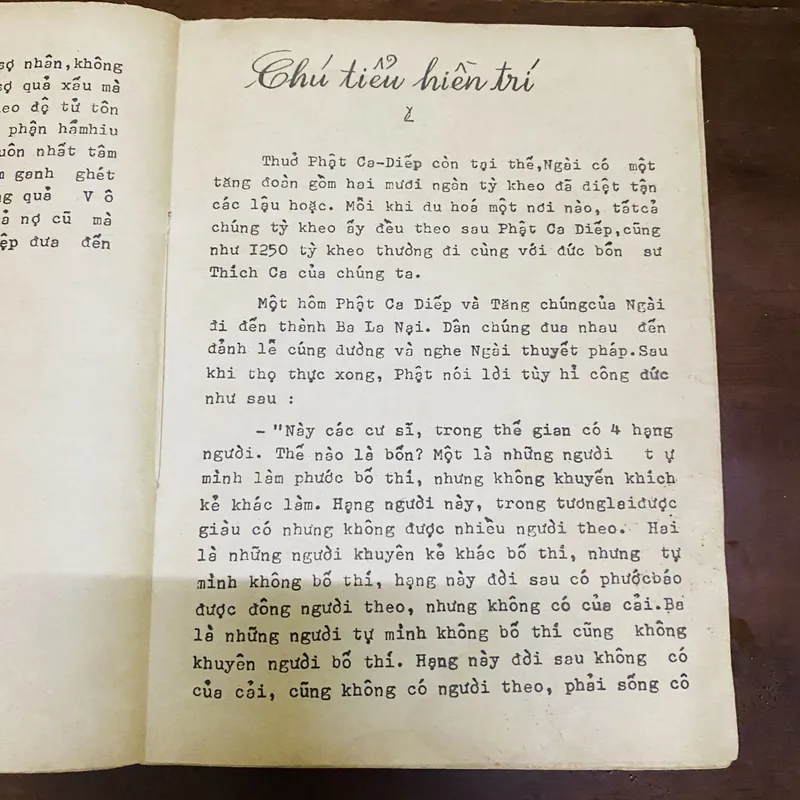 sợ nhân,không
sợ quả xấu mà
kheo độ tử tôn
phận hẩmhiu
uôn nhất tâm
ganh ghét
quả Vô
ả nợ cũ mà
iệp đưa đến
Chú tiểu hiền trí
Thuở Phật Ca-Diếp còn tại thế,Ngài có một
tăng đoàn gồm hai mươi ngàn tỳ kheo đã diệt tận
các lậu hoặc. Mỗi khi du hoá một nơi nào, tấtcả
chúng tỳ kheo ấy đều theo sau Phật Ca Diếp,cũng
như I250 tỳ kheo thường đi cùng với đức bổn sư
Thích Ca của chúng ta.
Một hôm Phật Ca Diếp và Tăng chúngcủa Ngài
đi đến thành Ba La Nại. Dân chúng đua nhau đến
đảnh lễ cúng dường và nghe Ngài thuyết pháp.Sau
khi thọ thực xong, Phật nói lời tùy hỉ công đức
như sau :
- "Này các cư sĩ, trong thế gian có 4 hạng
người. Thế nào là bốn? Một là những người tự
mình làm phước bố thí, nhưng không khuyến khích
kẻ khác làm. Hạng người này, trong tươnglaiđược
giàu có nhưng không được nhiều người theo. Hai
là những người khuyên kẻ khác bố thí, nhưng tự
mình không bố thí, hạng này đời sau có phướcbáo
được đông người theo, nhưng không có của cải.Ba
là những người tự mình không bố thí cũng không
khuyên người bố thí. Hạng này đời sau không có
của cải, cũng không có người theo, phải sống cô